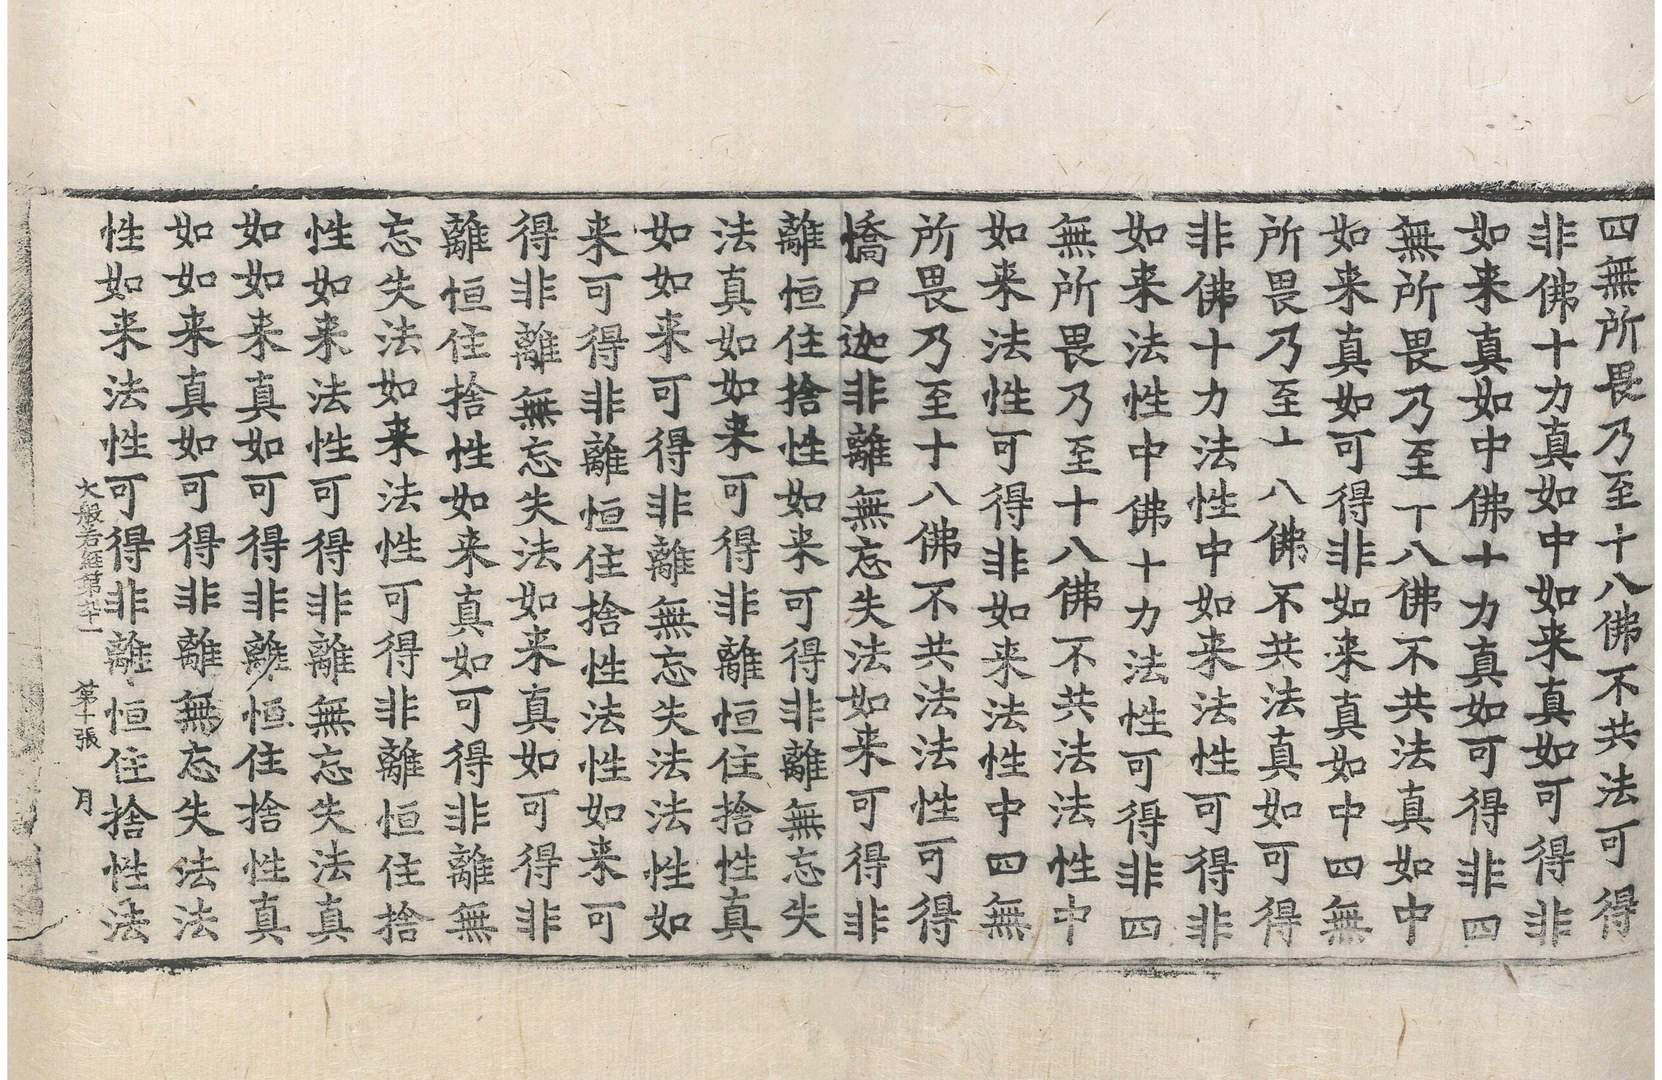 四無所畏乃至十八佛不共法可得
非佛十力真如中如来真如可得非
如来真如中佛十力真如可得非四
無所畏乃至十八佛不共法真如中
如来真如可得非如来真如中四無
所畏乃至十八佛不共法真如可得
非佛十力法性中如来法性可得非
如来法性中佛十力法性可得非四
無所畏乃至十八佛不共法法性中
如来法性可得非如来法性中四無
所畏乃至十八佛不共法法性可得
憍尸迦非離無忘失法如来可得非
離恒住捨性如来可得非離無忘失
法真如如来可得非離恒住捨性真
如如来可得非離無忘失法法性如
来可得非離恒住捨性法性如来可
得非離無忘失法如来真如可得非
離恒住捨性如来真如可得非離無
忘失法如来法性可得非離恒住捨
性如来法性可得非離無忘失法真
如如来真如可得非離恒住捨性真
如如来真如可得非離無忘失法法
性如来法性可得非離恒住捨性法
大般若經第卆一 第十張 月